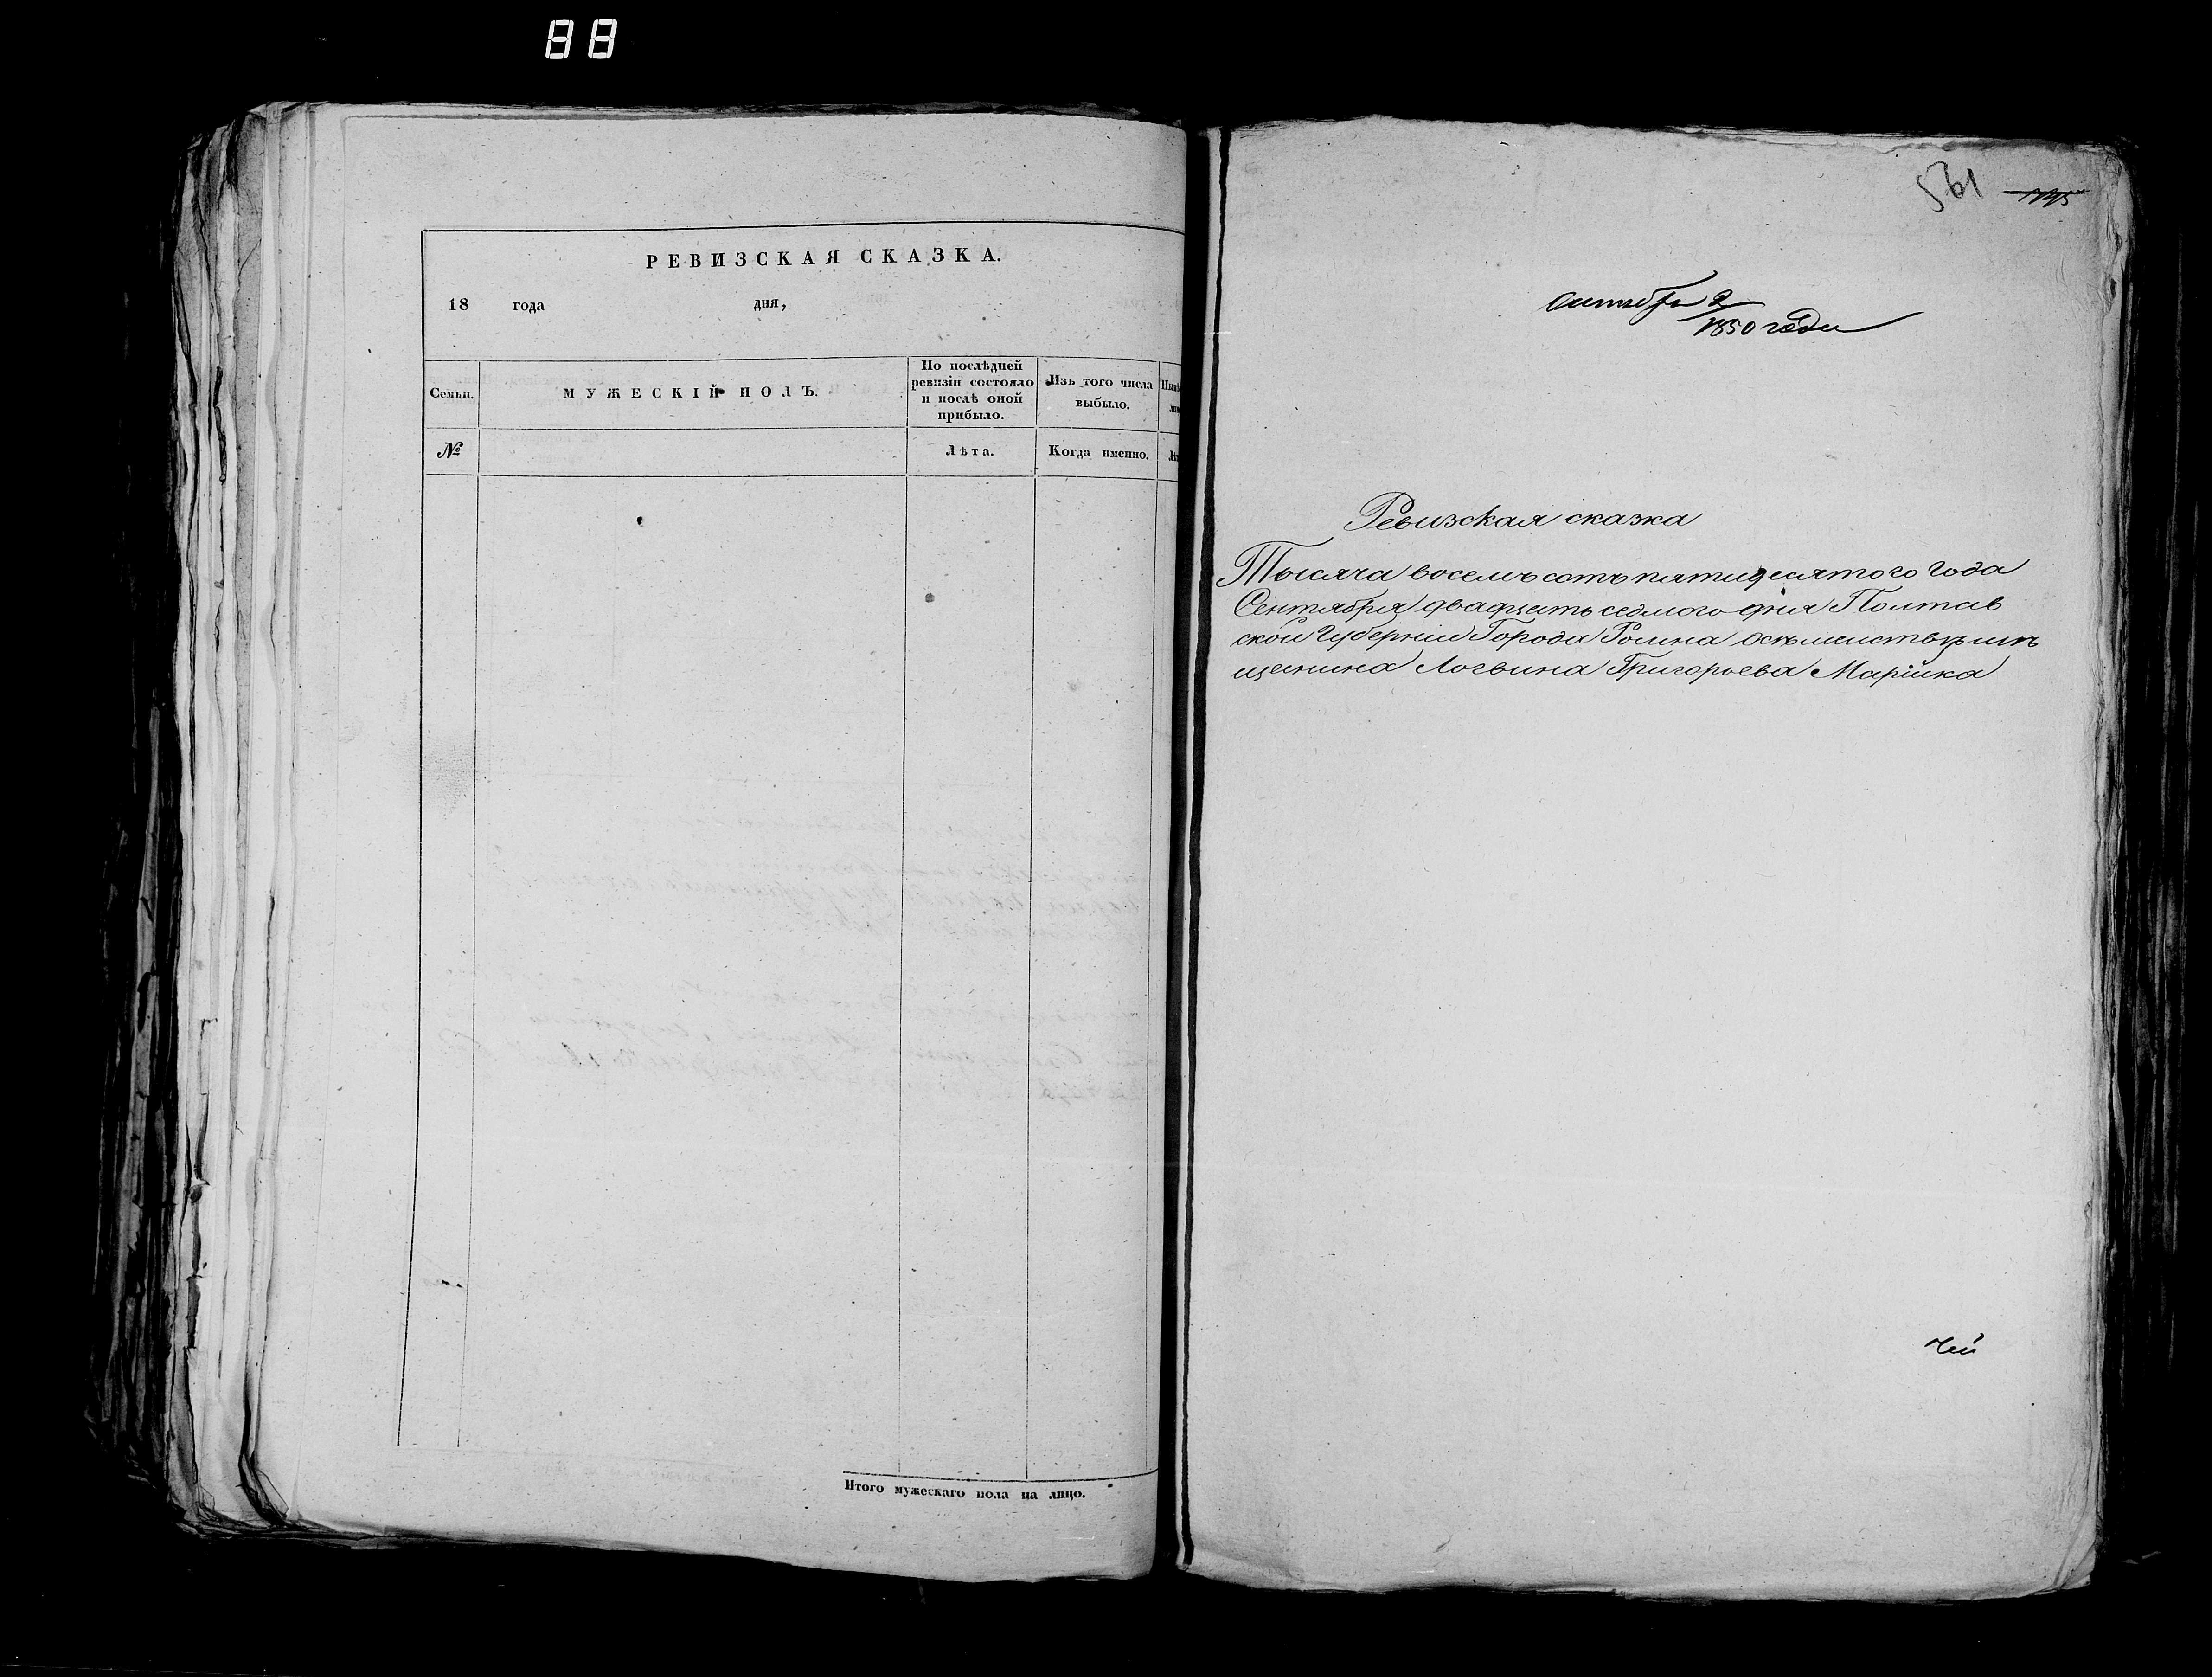 88
РЕВИЗСКАЯ СКАЗКА.
18 года дня,
Семьи.
МУЖЕСКІЙ ПОЛЪ.
По послѣдней
ревизіи состояло
и послѣ оной
прибыло.
Изъ того числа
выбыло.
№
Лѣта.
Когда именно.
Итого мужескаго пола на лицо.
561
2
1850 года
Ревизская сказка
Тысяча восемь сотъ пятидесятого года
Сентября двадцать седмого дня Полтав
ской Губерніи Города Ромна
щанина Логвина Григорьева Марійка